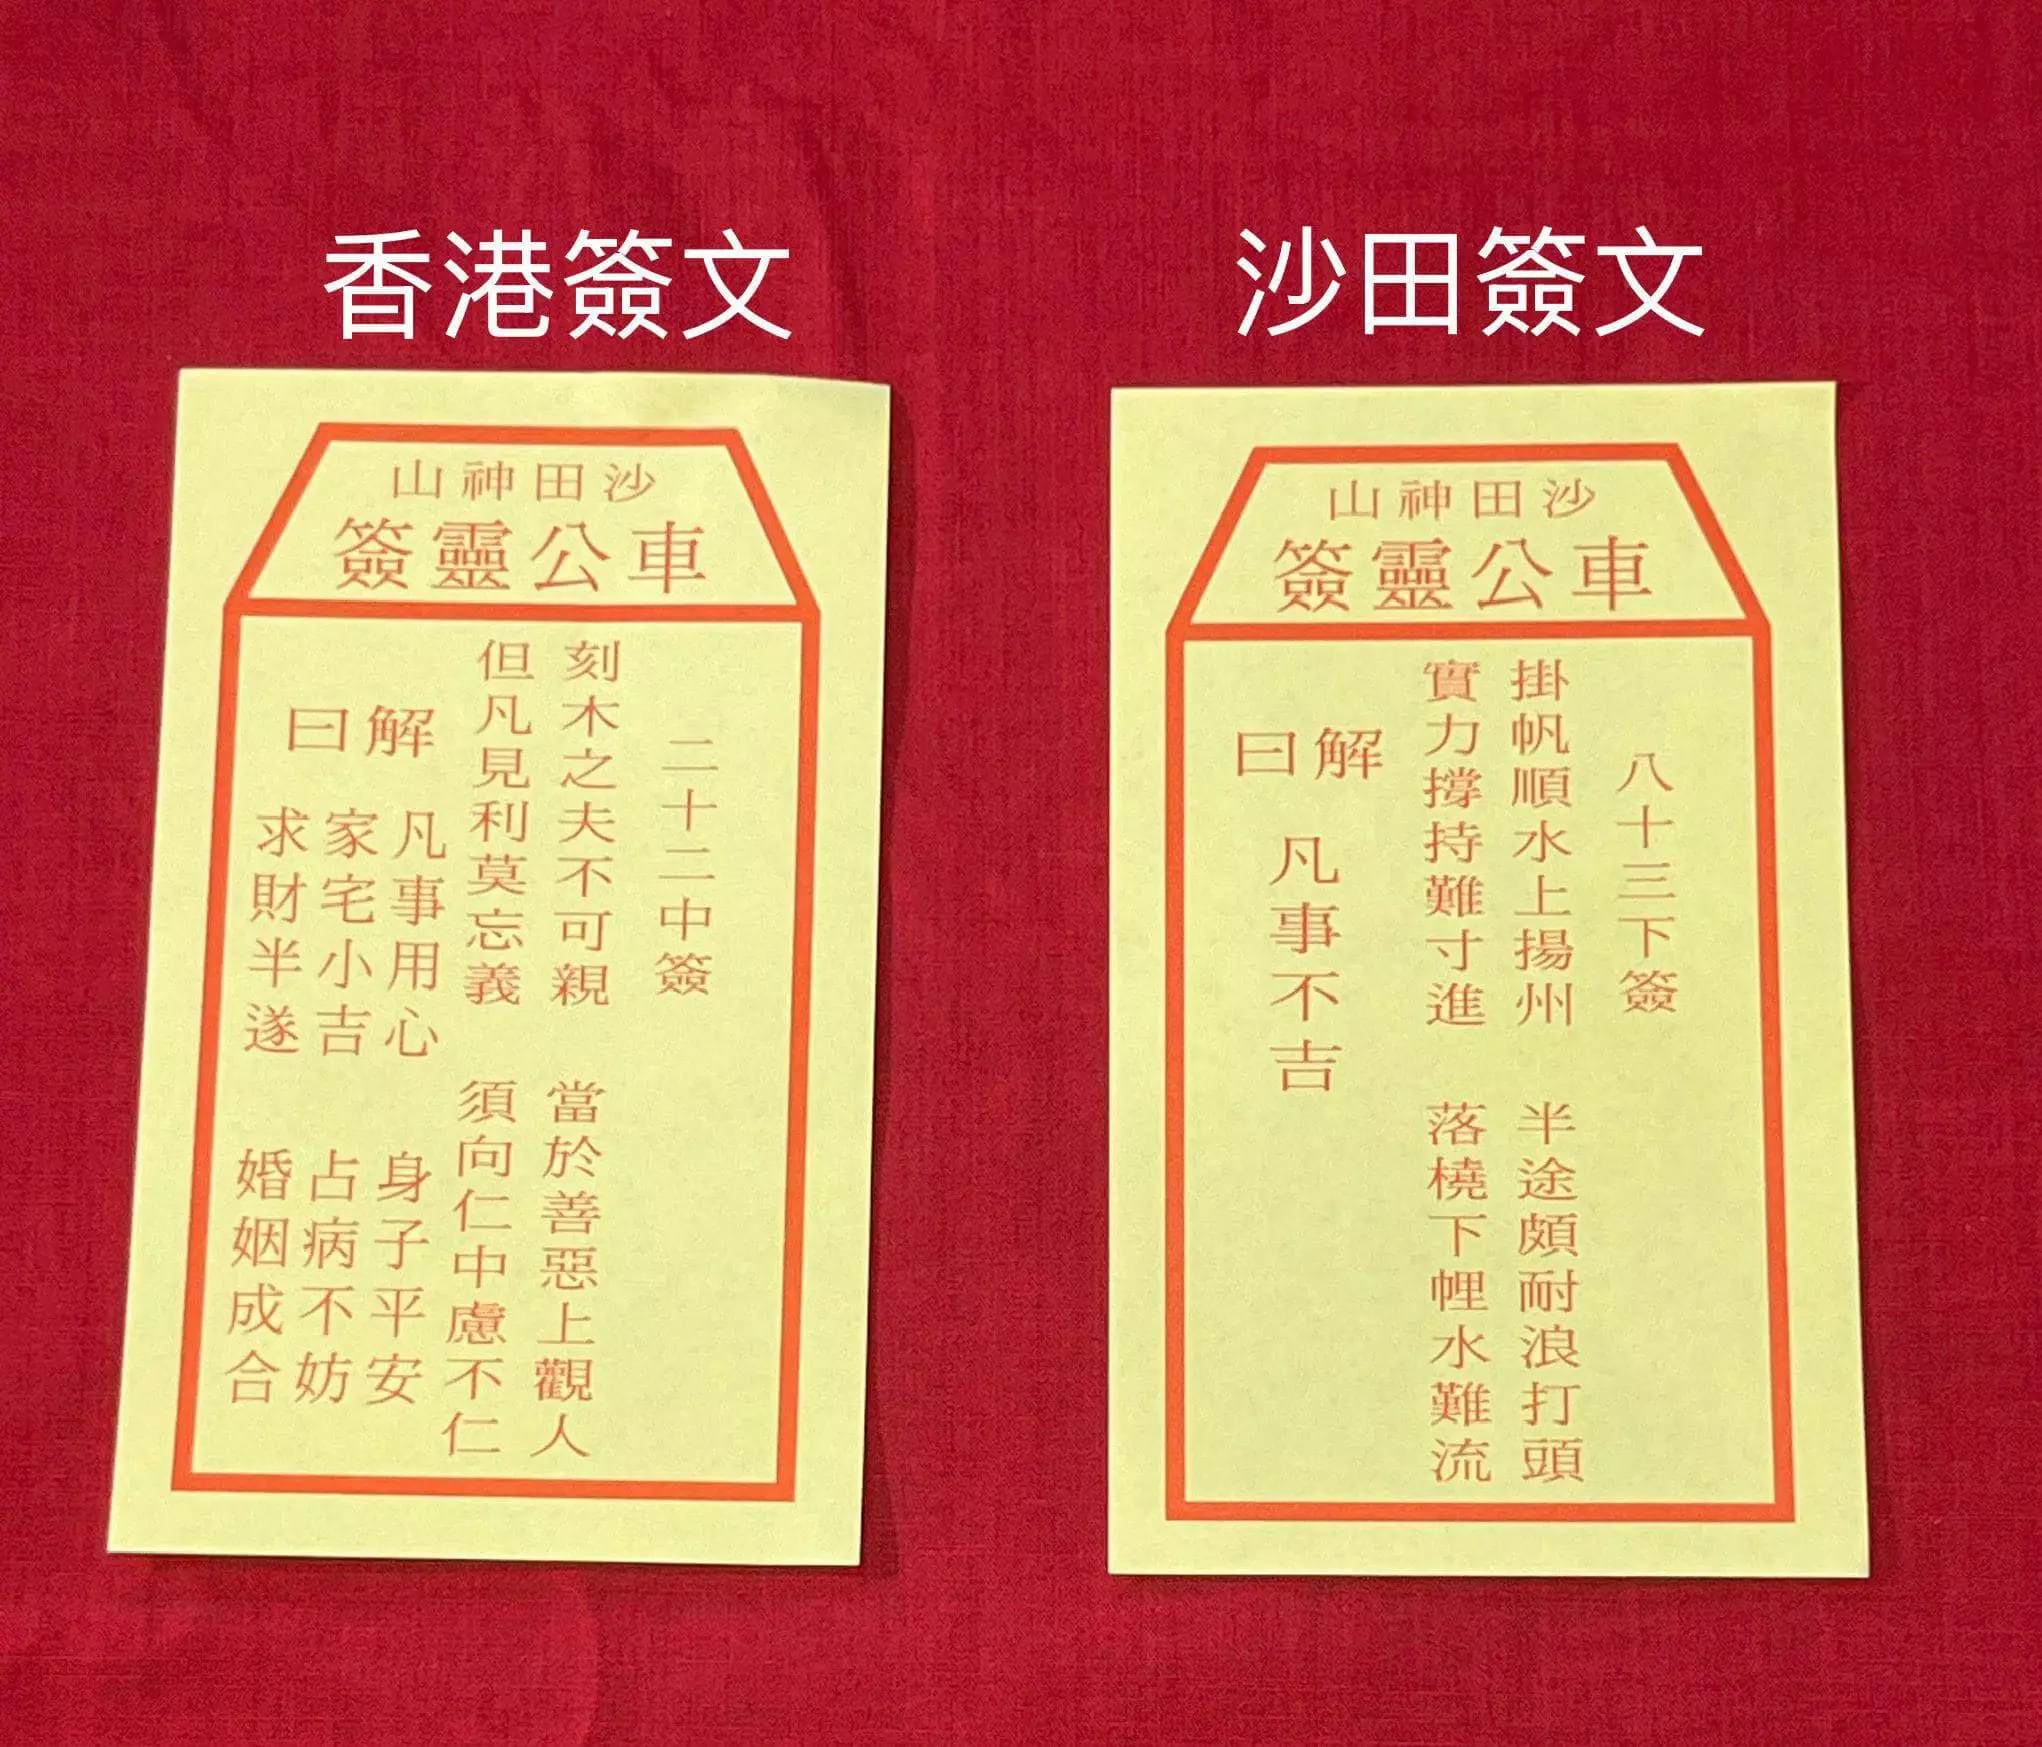 香港簽文
沙田簽文
沙田神山
車公靈簽
二十二中簽
刻木之夫不可親 當於善惡上觀人
但凡見利莫忘義 須向仁中慮不仁
解曰
凡事用心 身子平安
家宅小吉 占病不妨
求財半遂 婚姻成合
沙田神山
車公靈簽
八十三下簽
掛帆順水上揚州 半途頗耐浪打頭
實力撐持難寸進 落橈下悝水難流
解曰
凡事不吉